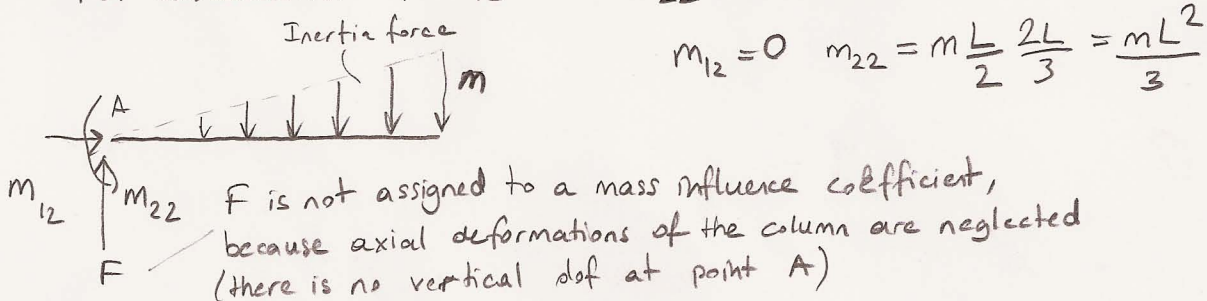 Inertia force
m₁₂ = 0 m₂₂ = m L/2 2L/3 = mL²/3
m
A
m₁₂
m₂₂
F
F is not assigned to a mass influence coefficient,
because axial deformations of the column are neglected
(there is no vertical dof at point A)